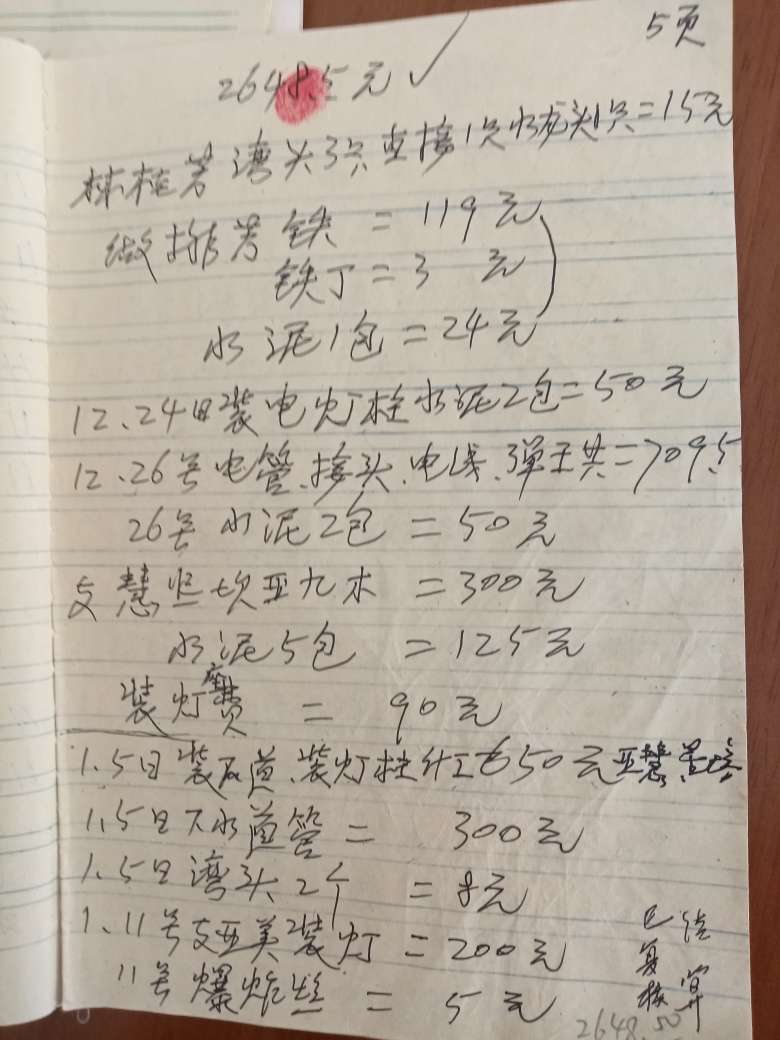 5页
2648.5元✓
林桂芳湾头3只直接1只水龙头1只=15元
做排芳铁=119元
铁丁=3元
水泥1包=24元
12.24日装电灯柱水泥2包=50元
12.26号电管、接头、电线、弹王共=709.5
26号水泥2包=50元
支慧坟亚九木=300元
水泥5包=125元
装灯座费=90元
1.5日装下道、装灯柱650元亚慧
1.5日下水道管=300元
1.5日湾头2个=8元
1.11号支亚美装灯=200元
11号爆炸丝=5元
已复核
2648.50